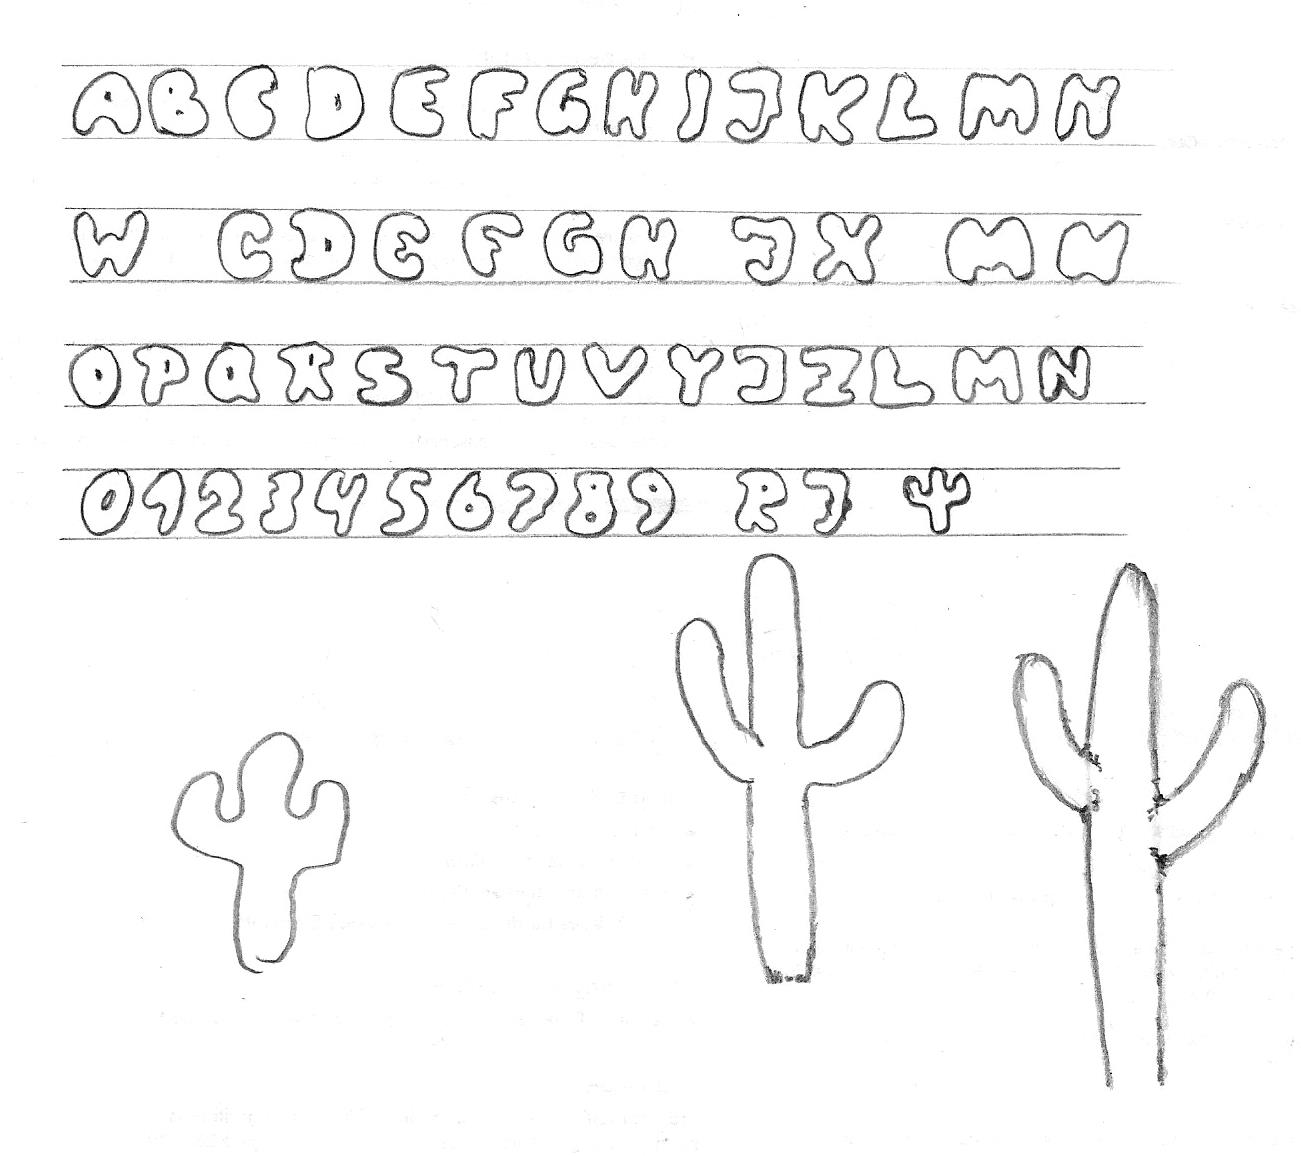 ABCDEFGHIJKLMN
W CDEFGH JX MN
OPQRSTUVYJZLMN
0123456789 RJ